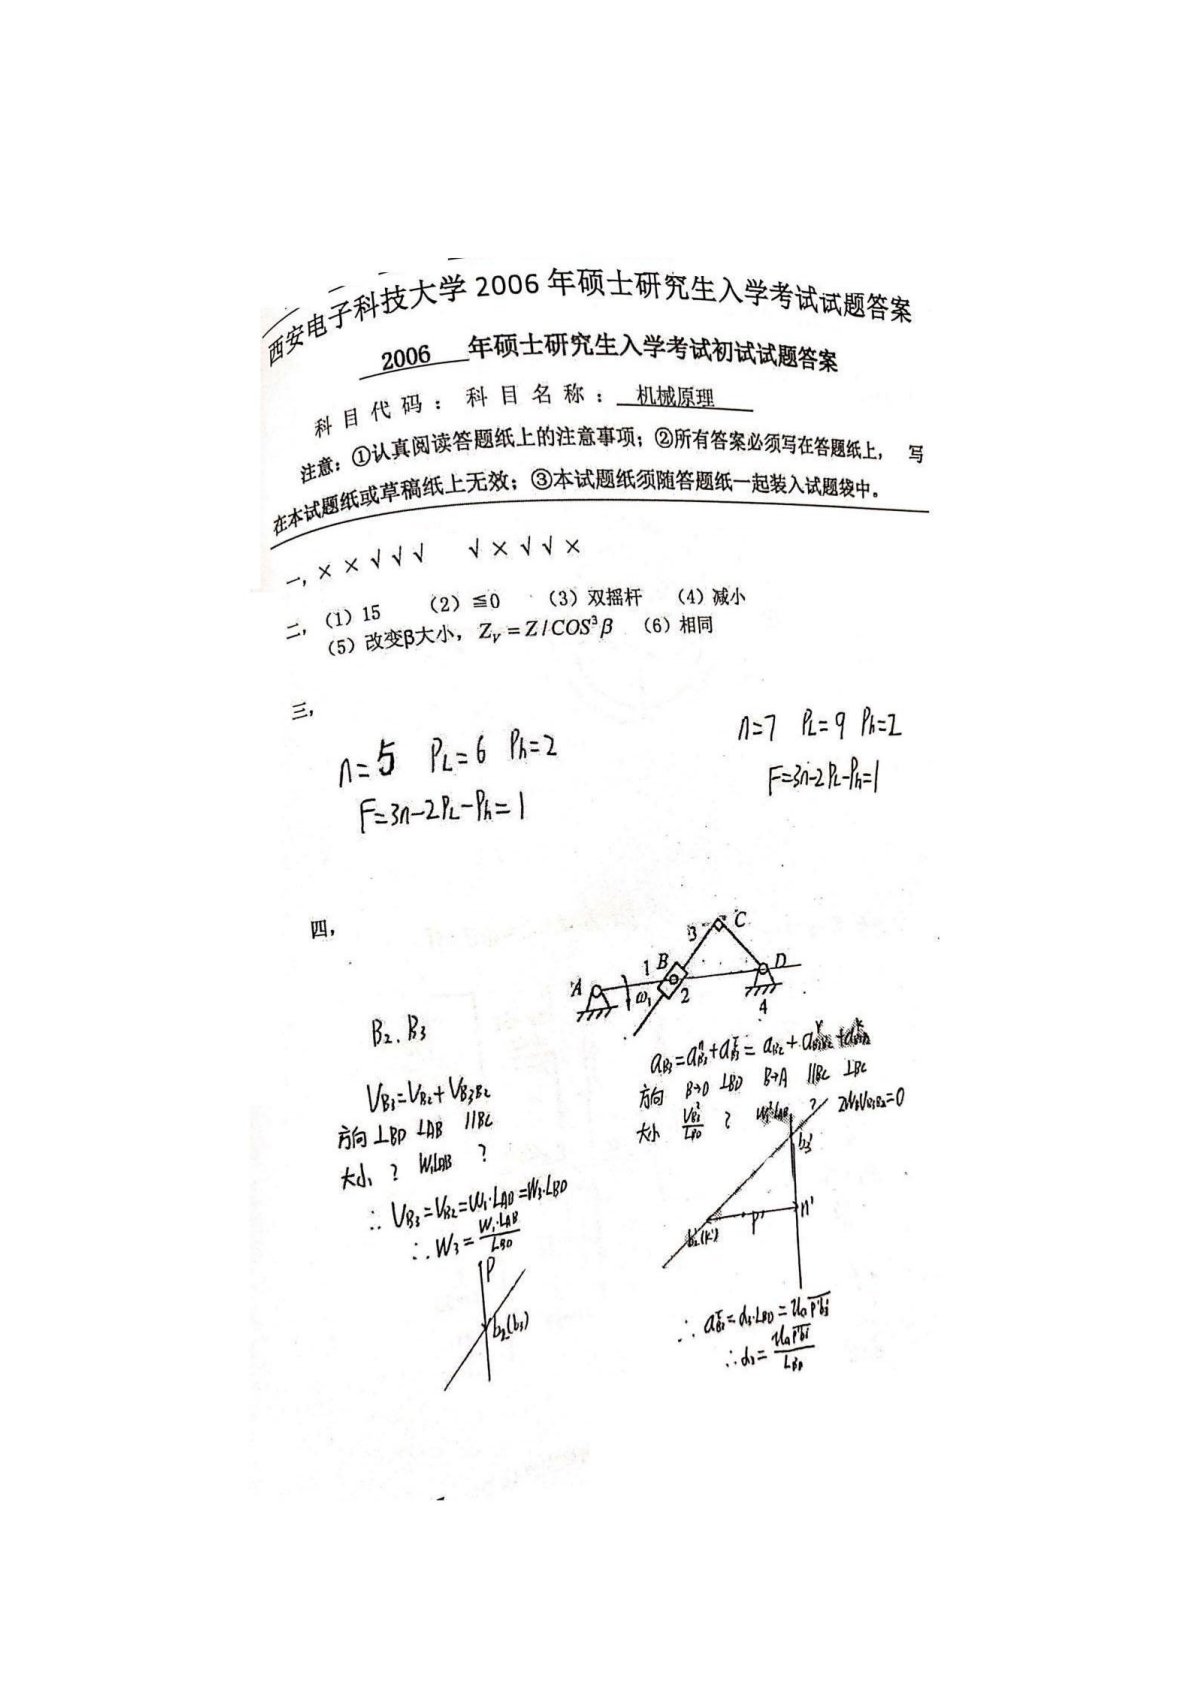 西安电子科技大学 2006 年硕士研究生入学考试试题答案
2006 年硕士研究生入学考试初试试题答案
科目代码：科目名称：机械原理
注意：①认真阅读答题纸上的注意事项；②所有答案必须写在答题纸上，写
在本试题纸或草稿纸上无效；③本试题纸须随答题纸一起装入试题袋中。
一，× × √ √ √ √ × √ √ ×
二，(1) 15 (2) ≦0 (3) 双摇杆 (4) 减小
(5) 改变β大小，Z_V = Z / COS³β (6) 相同
三，
n=5 P_L=6 P_h=2
F=3n-2P_L-P_h=1
n=7 P_L=9 P_h=2
F=3n-2P_L-P_h=1
四，
A 1 B 2 3 C D 4 ω₁
B₂、B₃
V_B3=V_B2+V_B3B2
方向 ⊥BD ⊥AB ∥BC
大小 ? W₁L_AB ?
∴ V_B3=V_B2=W₁·L_AB=W₃·L_BD
∴ W₃=W₁·L_AB/L_BD
P
b₂(b₃)
a_B3=a^n_B3+a^τ_B3=a_B2+a^r_B3B2+a^k_B3B2
方向 B→D ⊥BD B→A ∥BC ⊥BC
大小 V²_B3/L_BD ? W₁²L_AB ? 2W₃V_B3B2=0
b₃'
b₂'(k') P' n'
∴ a^τ_B3=α₃·L_BD=u_a p'b₃'
∴ α₃=u_a p'b₃'/L_BD